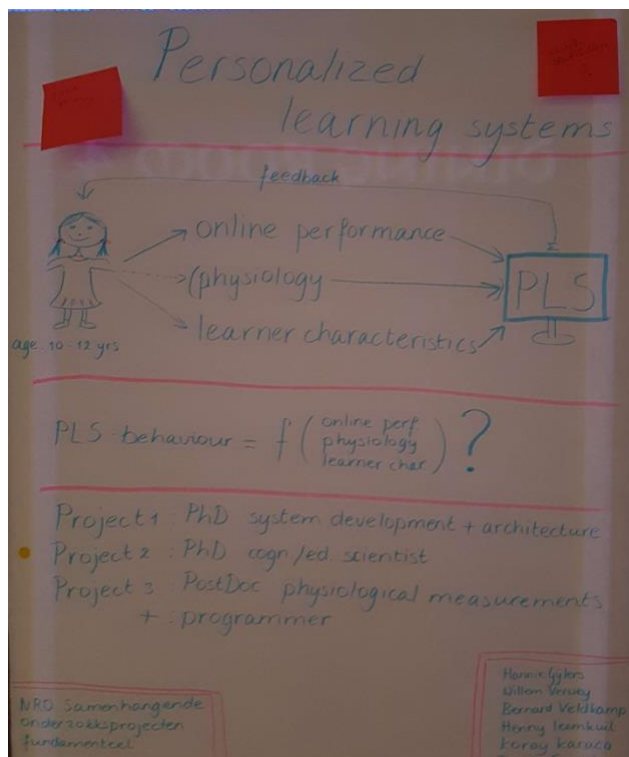 Personalized
learning systems
feedback
online performance
(physiology
learner characteristics
PLS
age 10-12 yrs
PLS behaviour = f ( online perf
physiology
learner char ) ?
Project 1 : PhD system development + architecture
Project 2 : PhD cogn/ed. scientist
Project 3 : PostDoc physiological measurements
+ : programmer
NRO Samenhangende
onderzoeksprojecten
fundamenteel
Hannie Gijlers
Willem Verwey
Bernard Veldkamp
Henny Leemkuil
Koray Karaca